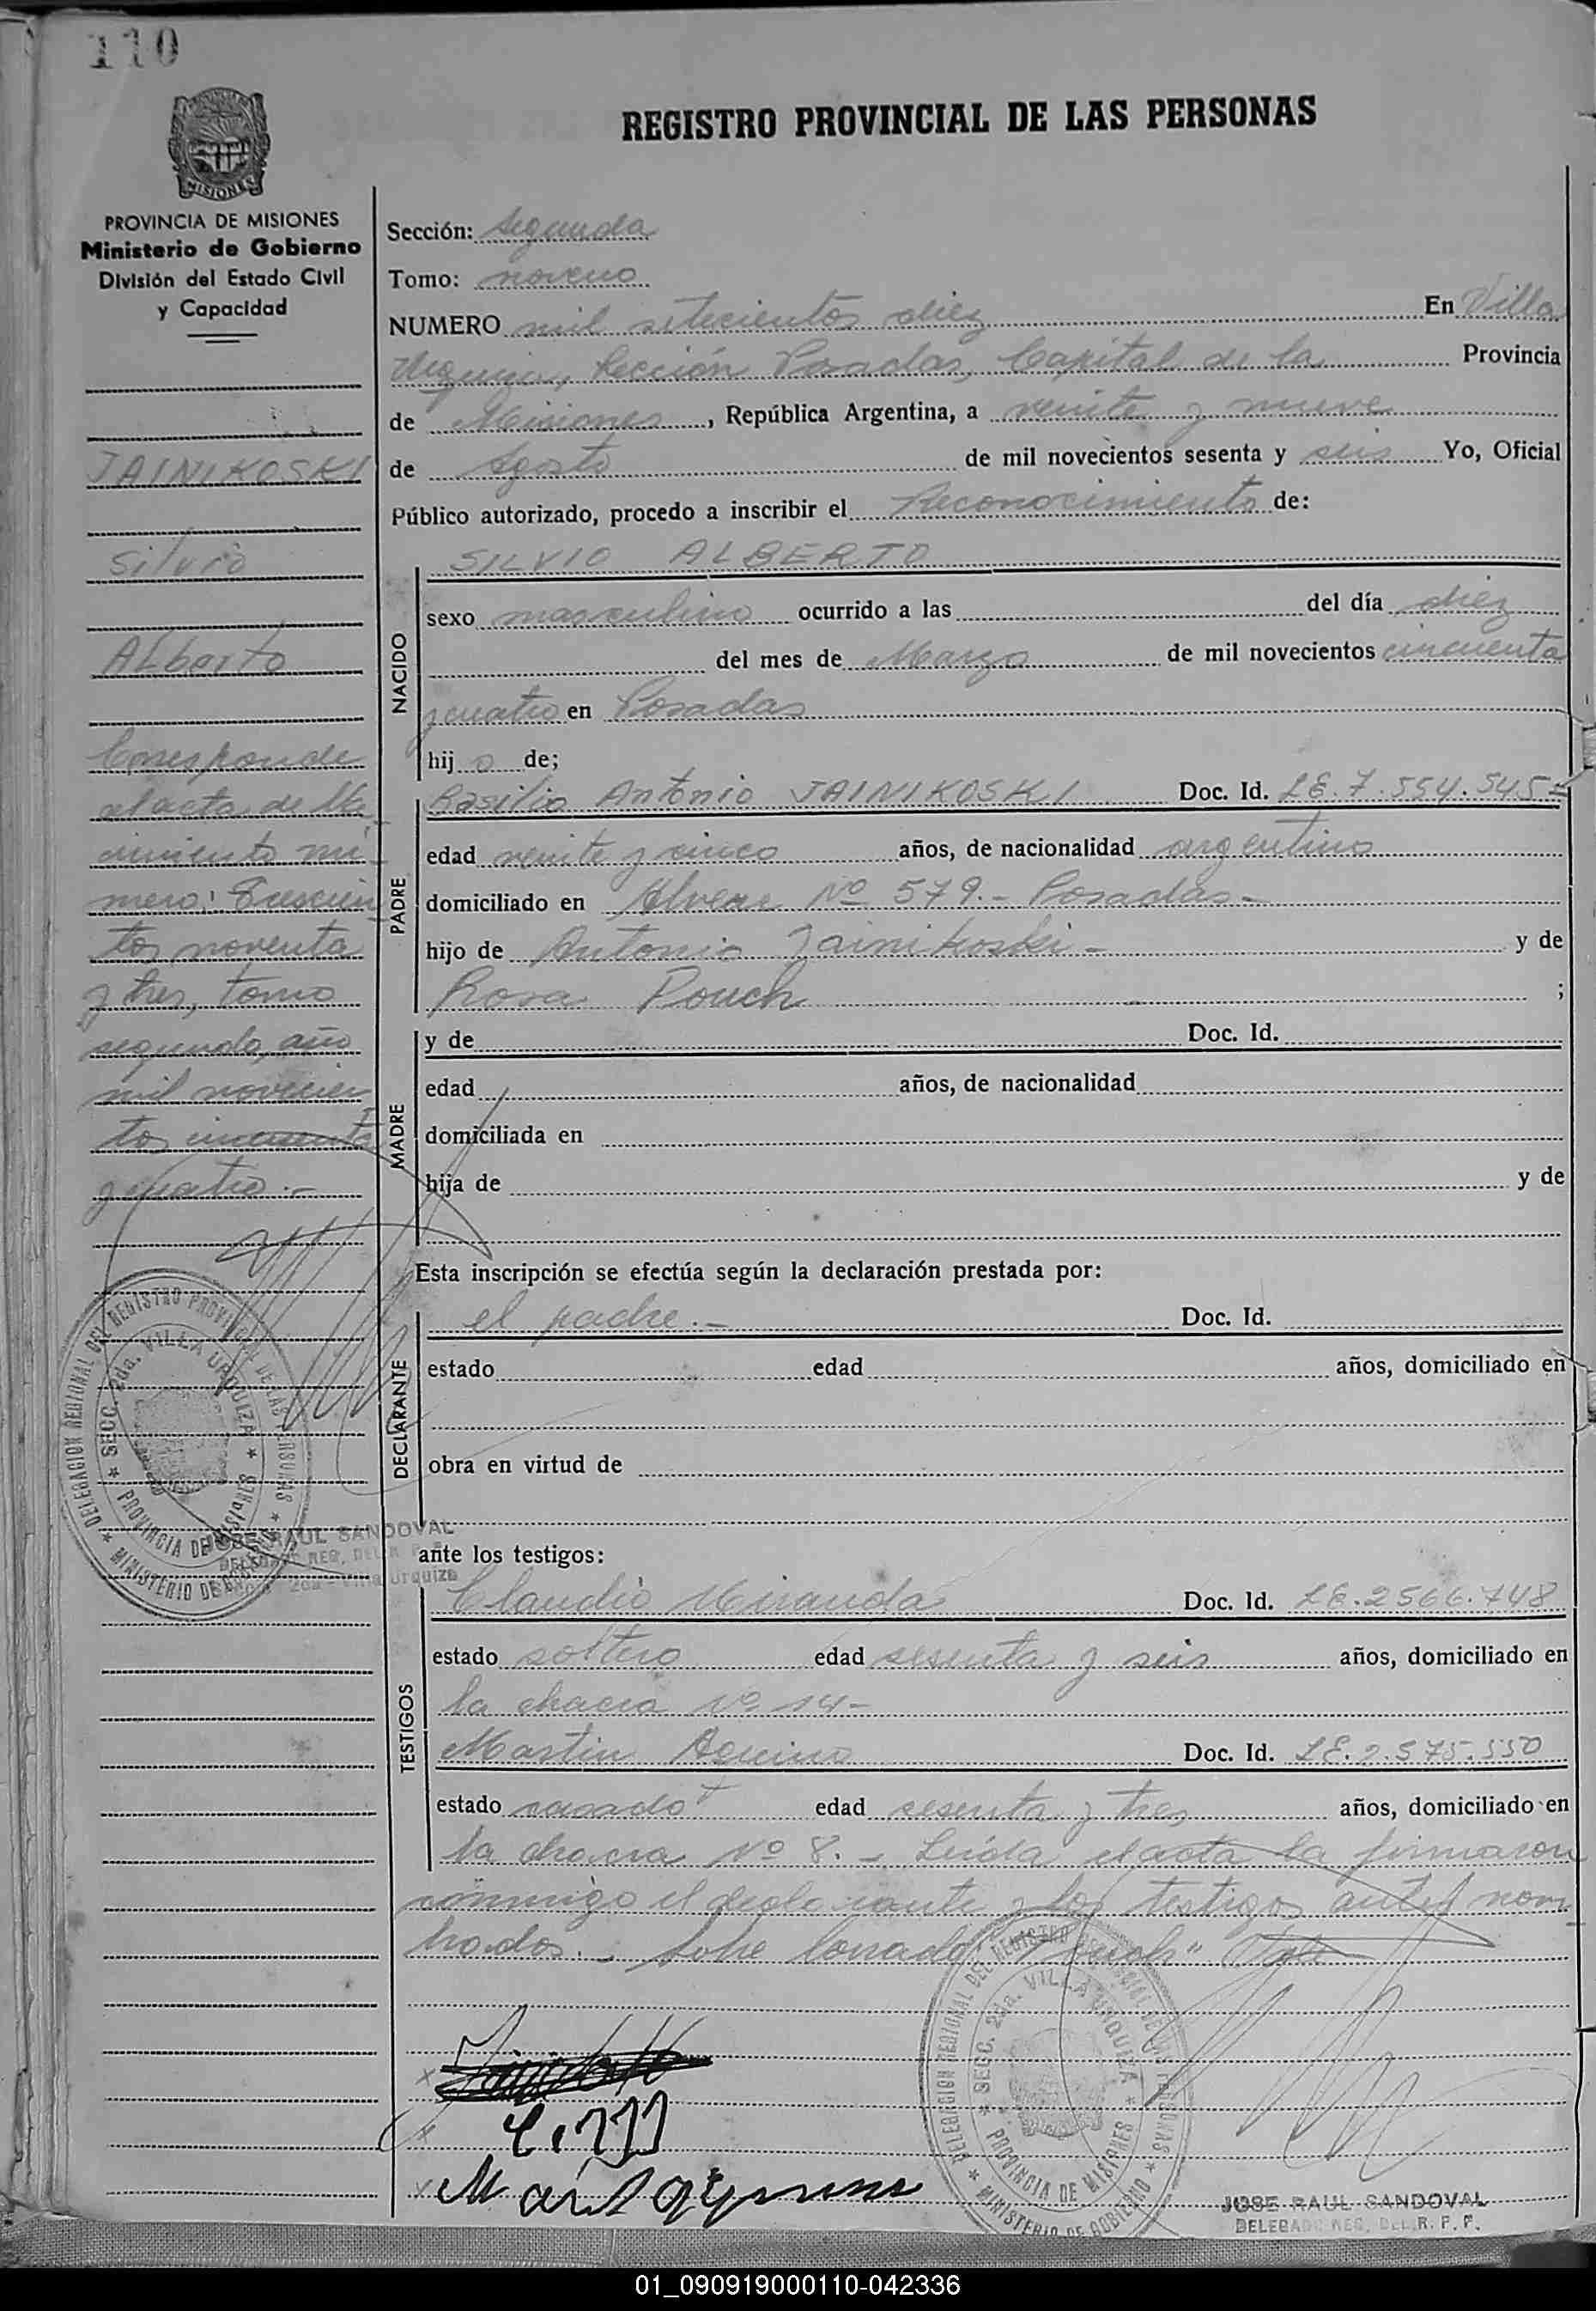 110
REGISTRO PROVINCIAL DE LAS PERSONAS
MISIONES
PROVINCIA DE MISIONES
Ministerio de Gobierno
División del Estado Civil
y Capacidad
JAINIKOSKI
Silvio
Alberto
Corresponde
al acta de Na-
cimiento nú-
mero: Trescien-
tos noventa
y tres, tomo
segundo, año
mil novecien
tos cincuenta
y cuatro.-
Sección: Segunda
Tomo: noveno
NUMERO mil setecientos diez En Villa
Urquiza, Sección Posadas, Capital de la Provincia
de Misiones, República Argentina, a veinte y nueve
de Agosto de mil novecientos sesenta y seis Yo, Oficial
Público autorizado, procedo a inscribir el Reconocimiento de:
SILVIO ALBERTO
NACIDO
sexo masculino ocurrido a las del día diez
del mes de Marzo de mil novecientos cincuenta
y cuatro en Posadas
hijo de;
PADRE
Basilio Antonio JAINIKOSKI Doc. Id. LE.7.554.545=
edad veinte y cinco años, de nacionalidad argentino
domiciliado en Alvear Nº 579.- Posadas-
hijo de Antonio Jainikoski- y de
Rosa Pouch ;
MADRE
y de Doc. Id.
edad años, de nacionalidad
domiciliada en
hija de y de
Esta inscripción se efectúa según la declaración prestada por:
DECLARANTE
el padre.- Doc. Id.
estado edad años, domiciliado en
obra en virtud de
ante los testigos:
TESTIGOS
Claudio Miranda Doc. Id. LE.2566.748
estado soltero edad sesenta y seis años, domiciliado en
la chacra Nº 14-
Martin Aquino Doc. Id. LE.2.575.550
estado casado edad sesenta y tres años, domiciliado en
la chacra Nº 8.- Leída el acta la firmaron
conmigo el declarante y los testigos antes nom
brados.- Sobre borrado: "Pouch" Vale
DELEGACION REGIONAL DEL REGISTRO PROVINCIAL DE LAS PERSONAS
SECC. 2da. VILLA URQUIZA
PROVINCIA DE MISIONES
MINISTERIO DE GOBIERNO
JOSE RAUL SANDOVAL
DELEGADO REG. DEL R. P. P.
Secc. 2da - Villa Urquiza
DELEGACION REGIONAL DEL REGISTRO PROVINCIAL DE LAS PERSONAS
SECC. 2da. VILLA URQUIZA
PROVINCIA DE MISIONES
MINISTERIO DE GOBIERNO
JOSE RAUL SANDOVAL
DELEGADO REG. DEL R. P. P.
01_090919000110-042336